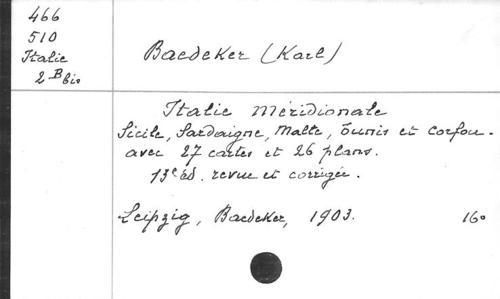 466
510
Italie
2 B bis
Baedeker (Karl)
Italie Méridionale
Sicile, Sardaigne, Malte, Tunis et Corfou.
avec 27 cartes et 26 plans.
13e éd. revue et corrigée.
Leipzig, Baedeker, 1903. 16°